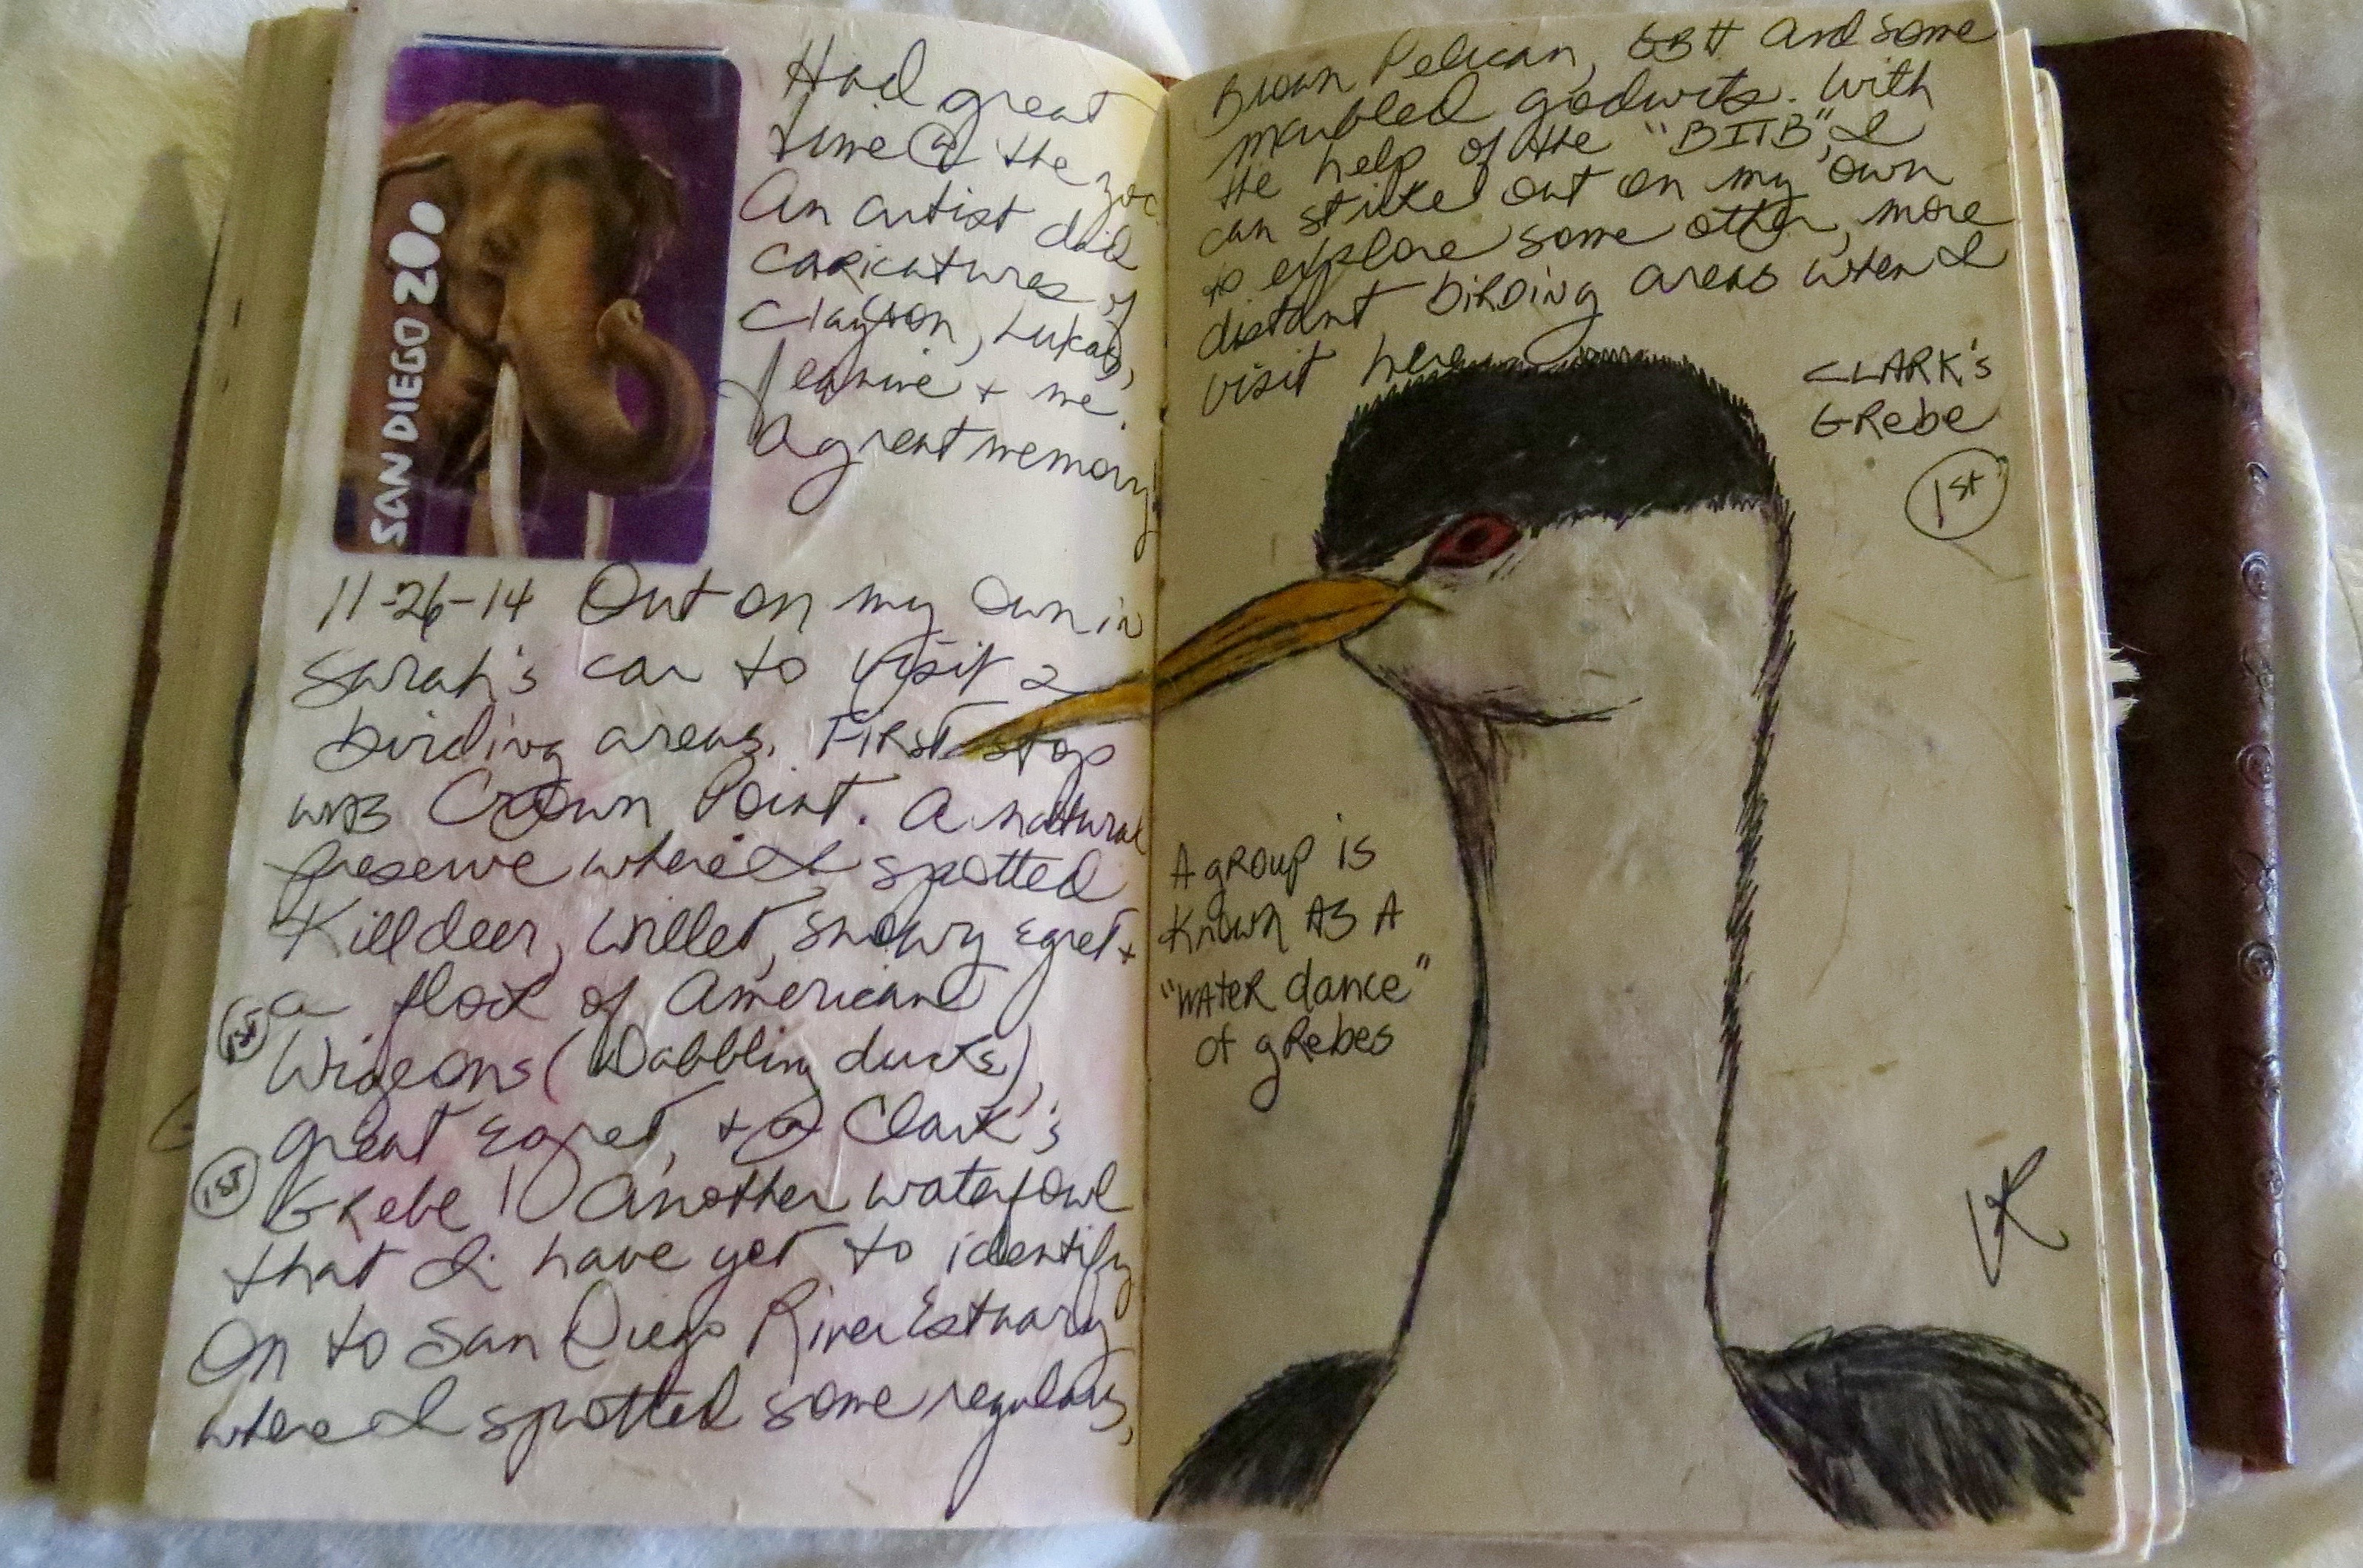 SAN DIEGO ZOO
Had great
time @ the zoo
An artist did
caricatures of
Clayton, Lukas,
Jeanine + me.
A great memory
11-26-14 Out on my own in
Sarah's car to visit 2
birding areas. First stop
was Crown Point. A natural
preserve where I spotted
Killdeer, Willet, Snowy Egret +
1st a flock of American
Wigeons (Dabbling ducks),
great Egret, + a Clark's
1st Grebe! Another waterfowl
that I have yet to identify
On to San Diego River Estuary
where I spotted some regulars,
Brown Pelican, GBH and some
marbled godwits. With
the help of the "BITB", I
can strike out on my own
to explore some other, more
distant birding areas when I
visit here
CLARK's
GRebe
1st
A gROUp is
Known AS A
"WAteR dance"
of gRebes